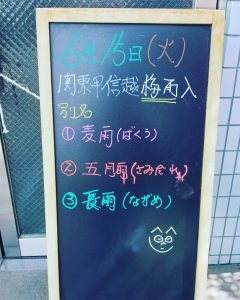 6月15日(火)
関東甲信越梅雨入
別名
①麦雨(ばくう)
②五月雨(さみだれ)
③長雨(ながめ)